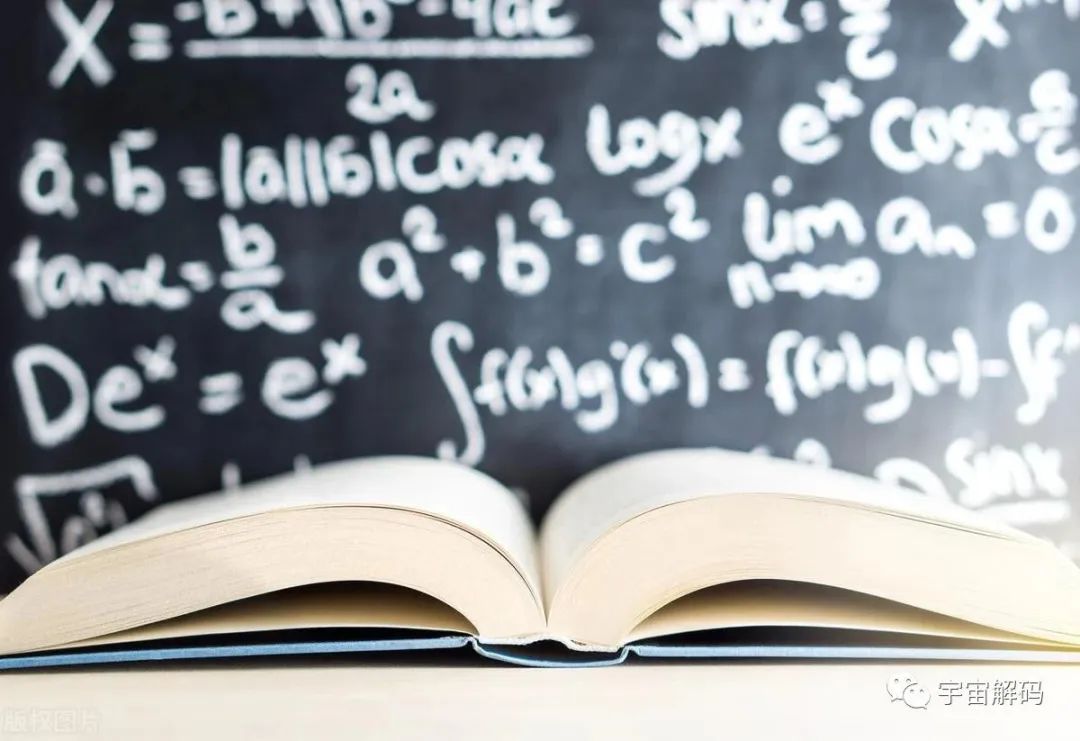 x = -b+√b²-4ac / 2a sinα = a/c
ā · b̄ = |ā||b̄|cosα logx eˣ cosα =
tanα = b/a a² + b² = c² lim n→∞ aₙ = 0
Deˣ = eˣ ∫f(x)g'(x) = f(x)g(x) - ∫f'
sinx
宇宙解码
版权图片